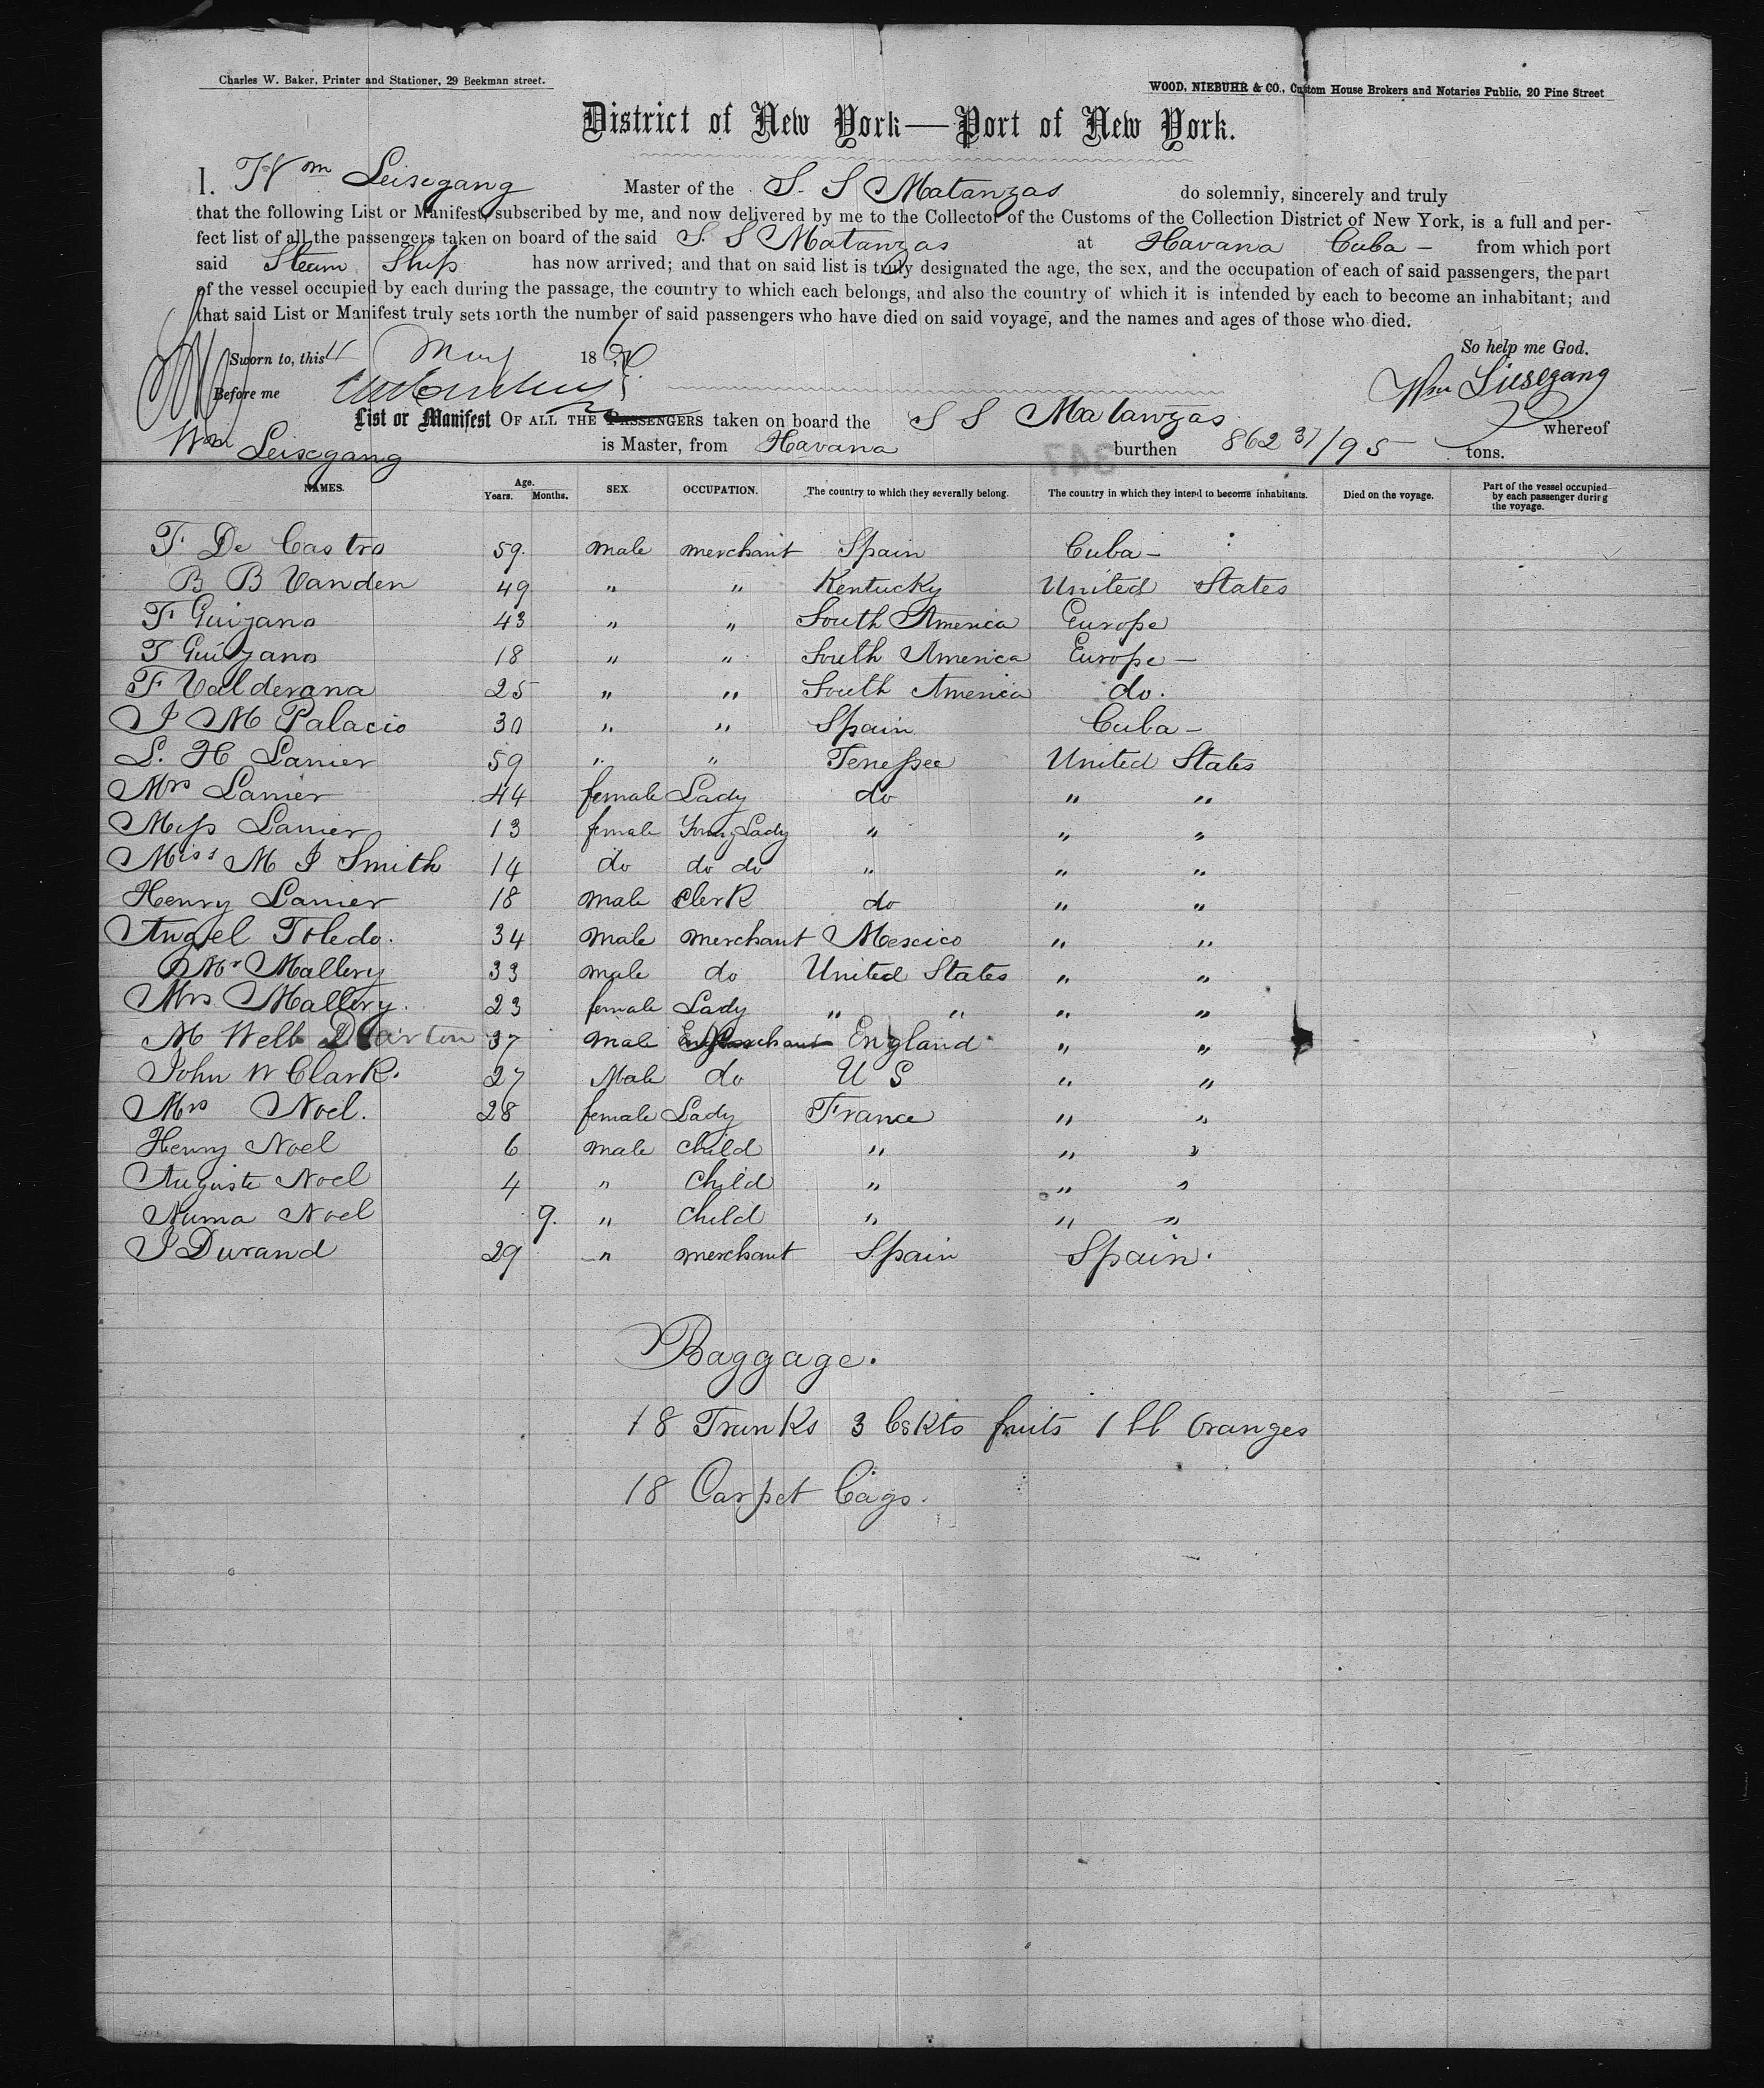 Charles W. Baker, Printer and Stationer, 29 Beekman street.
WOOD, NIEBUHR & CO., Custom House Brokers and Notaries Public, 20 Pine Street
District of New York—Port of New York.
I. Wm Leisegang Master of the S. S Matanzas do solemnly, sincerely and truly
that the following List or Manifest, subscribed by me, and now delivered by me to the Collector of the Customs of the Collection District of New York, is a full and per-
fect list of all the passengers taken on board of the said S. S Matanzas at Havana Cuba – from which port
said Steam Ship has now arrived; and that on said list is truly designated the age, the sex, and the occupation of each of said passengers, the part
of the vessel occupied by each during the passage, the country to which each belongs, and also the country of which it is intended by each to become an inhabitant; and
that said List or Manifest truly sets forth the number of said passengers who have died on said voyage, and the names and ages of those who died.
Sworn to, this May 18 So help me God.
Before me Wm Liesegang
List or Manifest OF ALL THE PASSENGERS taken on board the S S Matanzas whereof
Wm Leisegang is Master, from Havana burthen 862 37/95 tons.
NAMES. Age. Years. Months. SEX. OCCUPATION. The country to which they severally belong. The country in which they intend to become inhabitants. Died on the voyage. Part of the vessel occupied by each passenger during the voyage.
F De Castro 59. male merchant Spain Cuba –
B B Vanden 49 " " Kentucky United States
F Guijano 43 " " South America Europe
T Guijano 18 " " South America Europe –
F Valderana 25 " " South America do.
J M Palacio 30 " " Spain Cuba –
L. H Lanier 59 " " Tenessee United States
Mrs Lanier 44 female Lady do " "
Miss Lanier 13 female Young Lady " " "
Miss M J Smith 14 do do do " " "
Henry Lanier 18 male Clerk do " "
Angel Toledo. 34 male merchant Mexico " "
Mr Mallery 33 male do United States " "
Mrs Mallery. 23 female Lady " " " "
M Welb Darton 37 male merchant England " "
John W Clark. 27 Male do U S " "
Mrs Noel. 28 female Lady France " "
Henry Noel 6 male child " " "
Auguste Noel 4 " Child " " "
Numa Noel 9. " child " " "
J Durand 29 " merchant Spain Spain.
Baggage.
18 Trunks 3 bskts fruits 1 bl Oranges
18 Carpet bags.